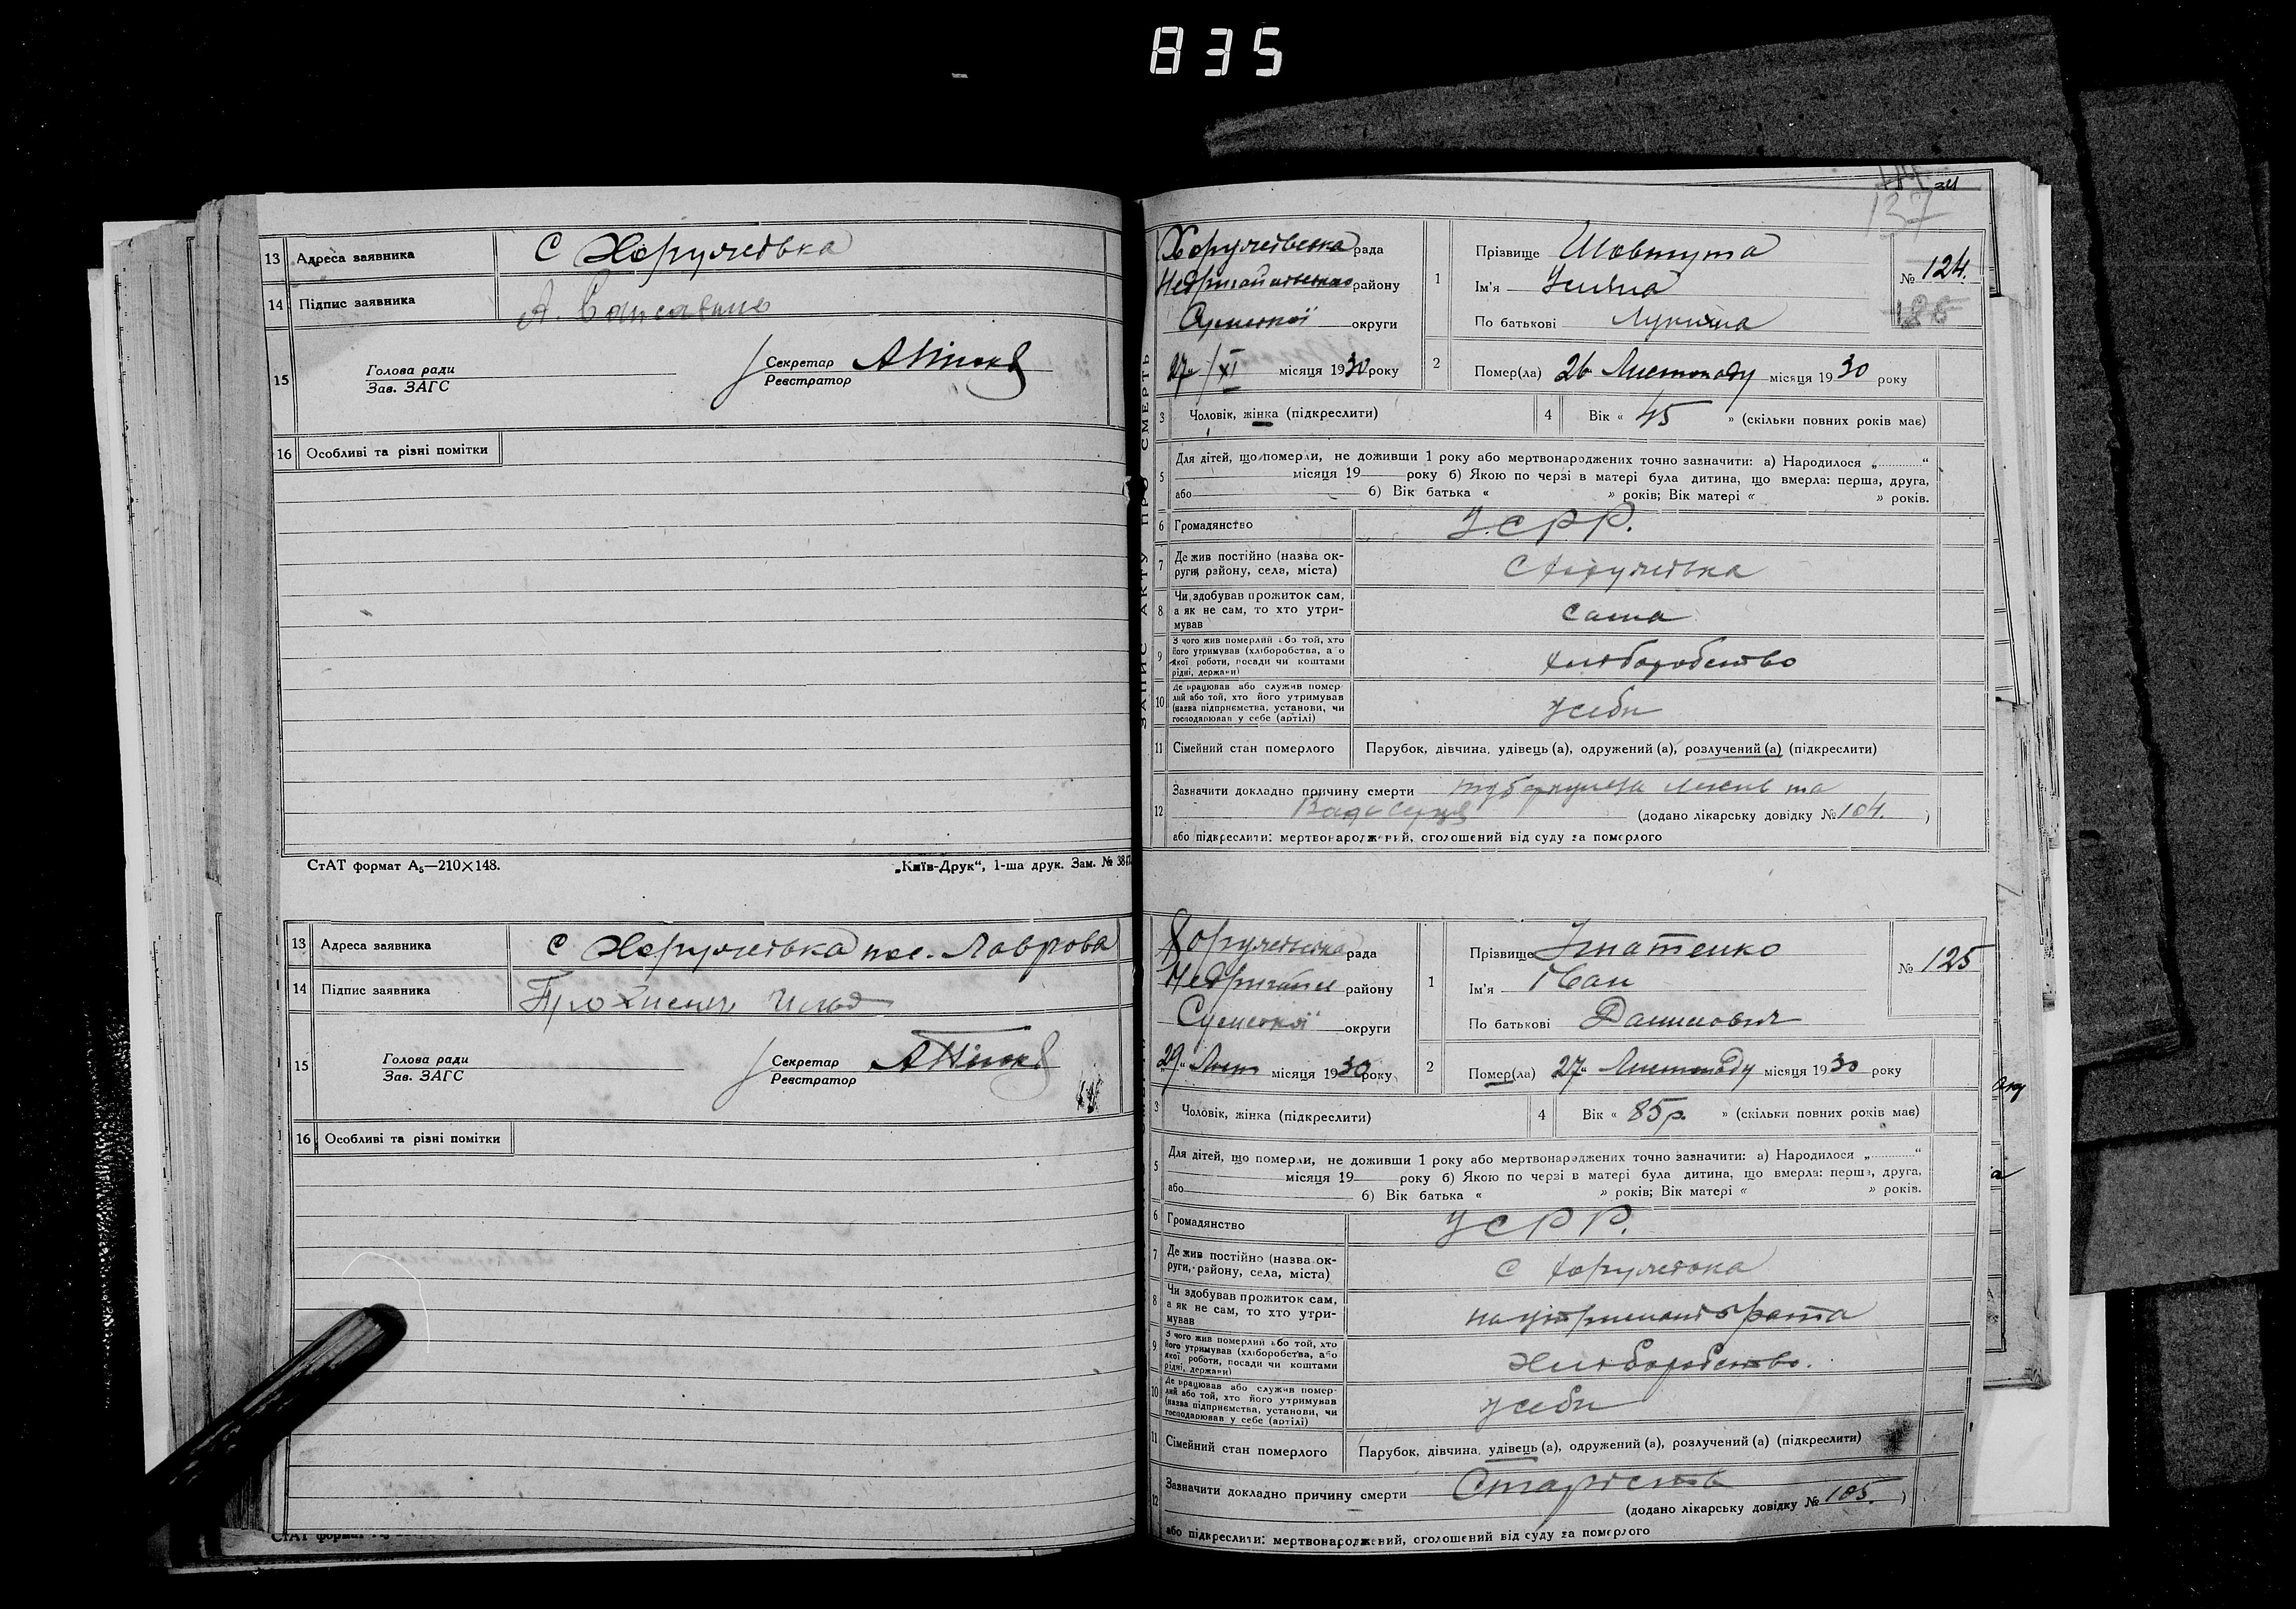 835
13 Адреса заявника С Хоружевка
14 Підпис заявника А.
15 Голова ради
Зав. ЗАГС
Секретар
Реєстратор
16 Особливі та різні помітки
СтАТ формат А₅—210×148.
„Київ-Друк“, 1-ша друк. Зам. №
13 Адреса заявника С Хоружевка пос. Лаврова
14 Підпис заявника
15 Голова ради
Зав. ЗАГС
Секретар
Реєстратор
16 Особливі та різні помітки
СтАТ формат
137
ЗАПИС АКТУ ПРО СМЕРТЬ
Хоружевська рада
району
Сумської округи
27 / XI місяця 1930 року
1 Прізвище Шовкута
Ім'я Уляна
По батькові Лукична
№ 124.
2 Помер(ла) 26 Листопаду місяця 1930 року
3 Чоловік, жінка (підкреслити)
4 Вік « 45 » (скільки повних років має)
5 Для дітей, що померли, не доживши 1 року або мертвонароджених точно зазначити: а) Народилося „ “
місяця 19 року б) Якою по черзі в матері була дитина, що вмерла: перша, друга,
або 6) Вік батька « » років; Вік матері « » років.
6 Громадянство У.С.Р.Р.
7 Де жив постійно (назва округи, району, села, міста) С Хоружевка
8 Чи здобував прожиток сам, а як не сам, то хто утримував сама
9 З чого жив померлий або той, хто його утримував (хліборобства, або якої роботи, посади чи коштами рідні, держави) хліборобство
10 Де працював або служив померлий або той, хто його утримував (назва підприємства, установи, чи господарював у себе (артілі) у себе
11 Сімейний стан померлого Парубок, дівчина, удівець (а), одружений (а), розлучений (а) (підкреслити)
12 Зазначити докладно причину смерти туберкульоза легень та
Вада серця (додано лікарську довідку № 104. )
або підкреслити: мертвонароджений, оголошений від суду за померлого
рада
району
Сумської округи
29 Лист місяця 1930 року
1 Прізвище Ігнатенко
Ім'я Іван
По батькові Данилович
№ 125
2 Помер(ла) 27 Листопаду місяця 1930 року
3 Чоловік, жінка (підкреслити)
4 Вік « 85 р. » (скільки повних років має)
5 Для дітей, що померли, не доживши 1 року або мертвонароджених точно зазначити: а) Народилося „ “
місяця 19 року б) Якою по черзі в матері була дитина, що вмерла: перша, друга,
або 6) Вік батька « » років; Вік матері « » років.
6 Громадянство УСРР.
7 Де жив постійно (назва округи, району, села, міста) С Хоружевка
8 Чи здобував прожиток сам, а як не сам, то хто утримував на утримані брата
9 З чого жив померлий або той, хто його утримував (хліборобства, або якої роботи, посади чи коштами рідні, держави) Хліборобство.
10 Де працював або служив померлий або той, хто його утримував (назва підприємства, установи, чи господарював у себе (артілі) у себе
11 Сімейний стан померлого Парубок, дівчина, удівець (а), одружений (а), розлучений (а) (підкреслити)
12 Зазначити докладно причину смерти Старість
(додано лікарську довідку № 105. )
або підкреслити: мертвонароджений, оголошений від суду за померлого